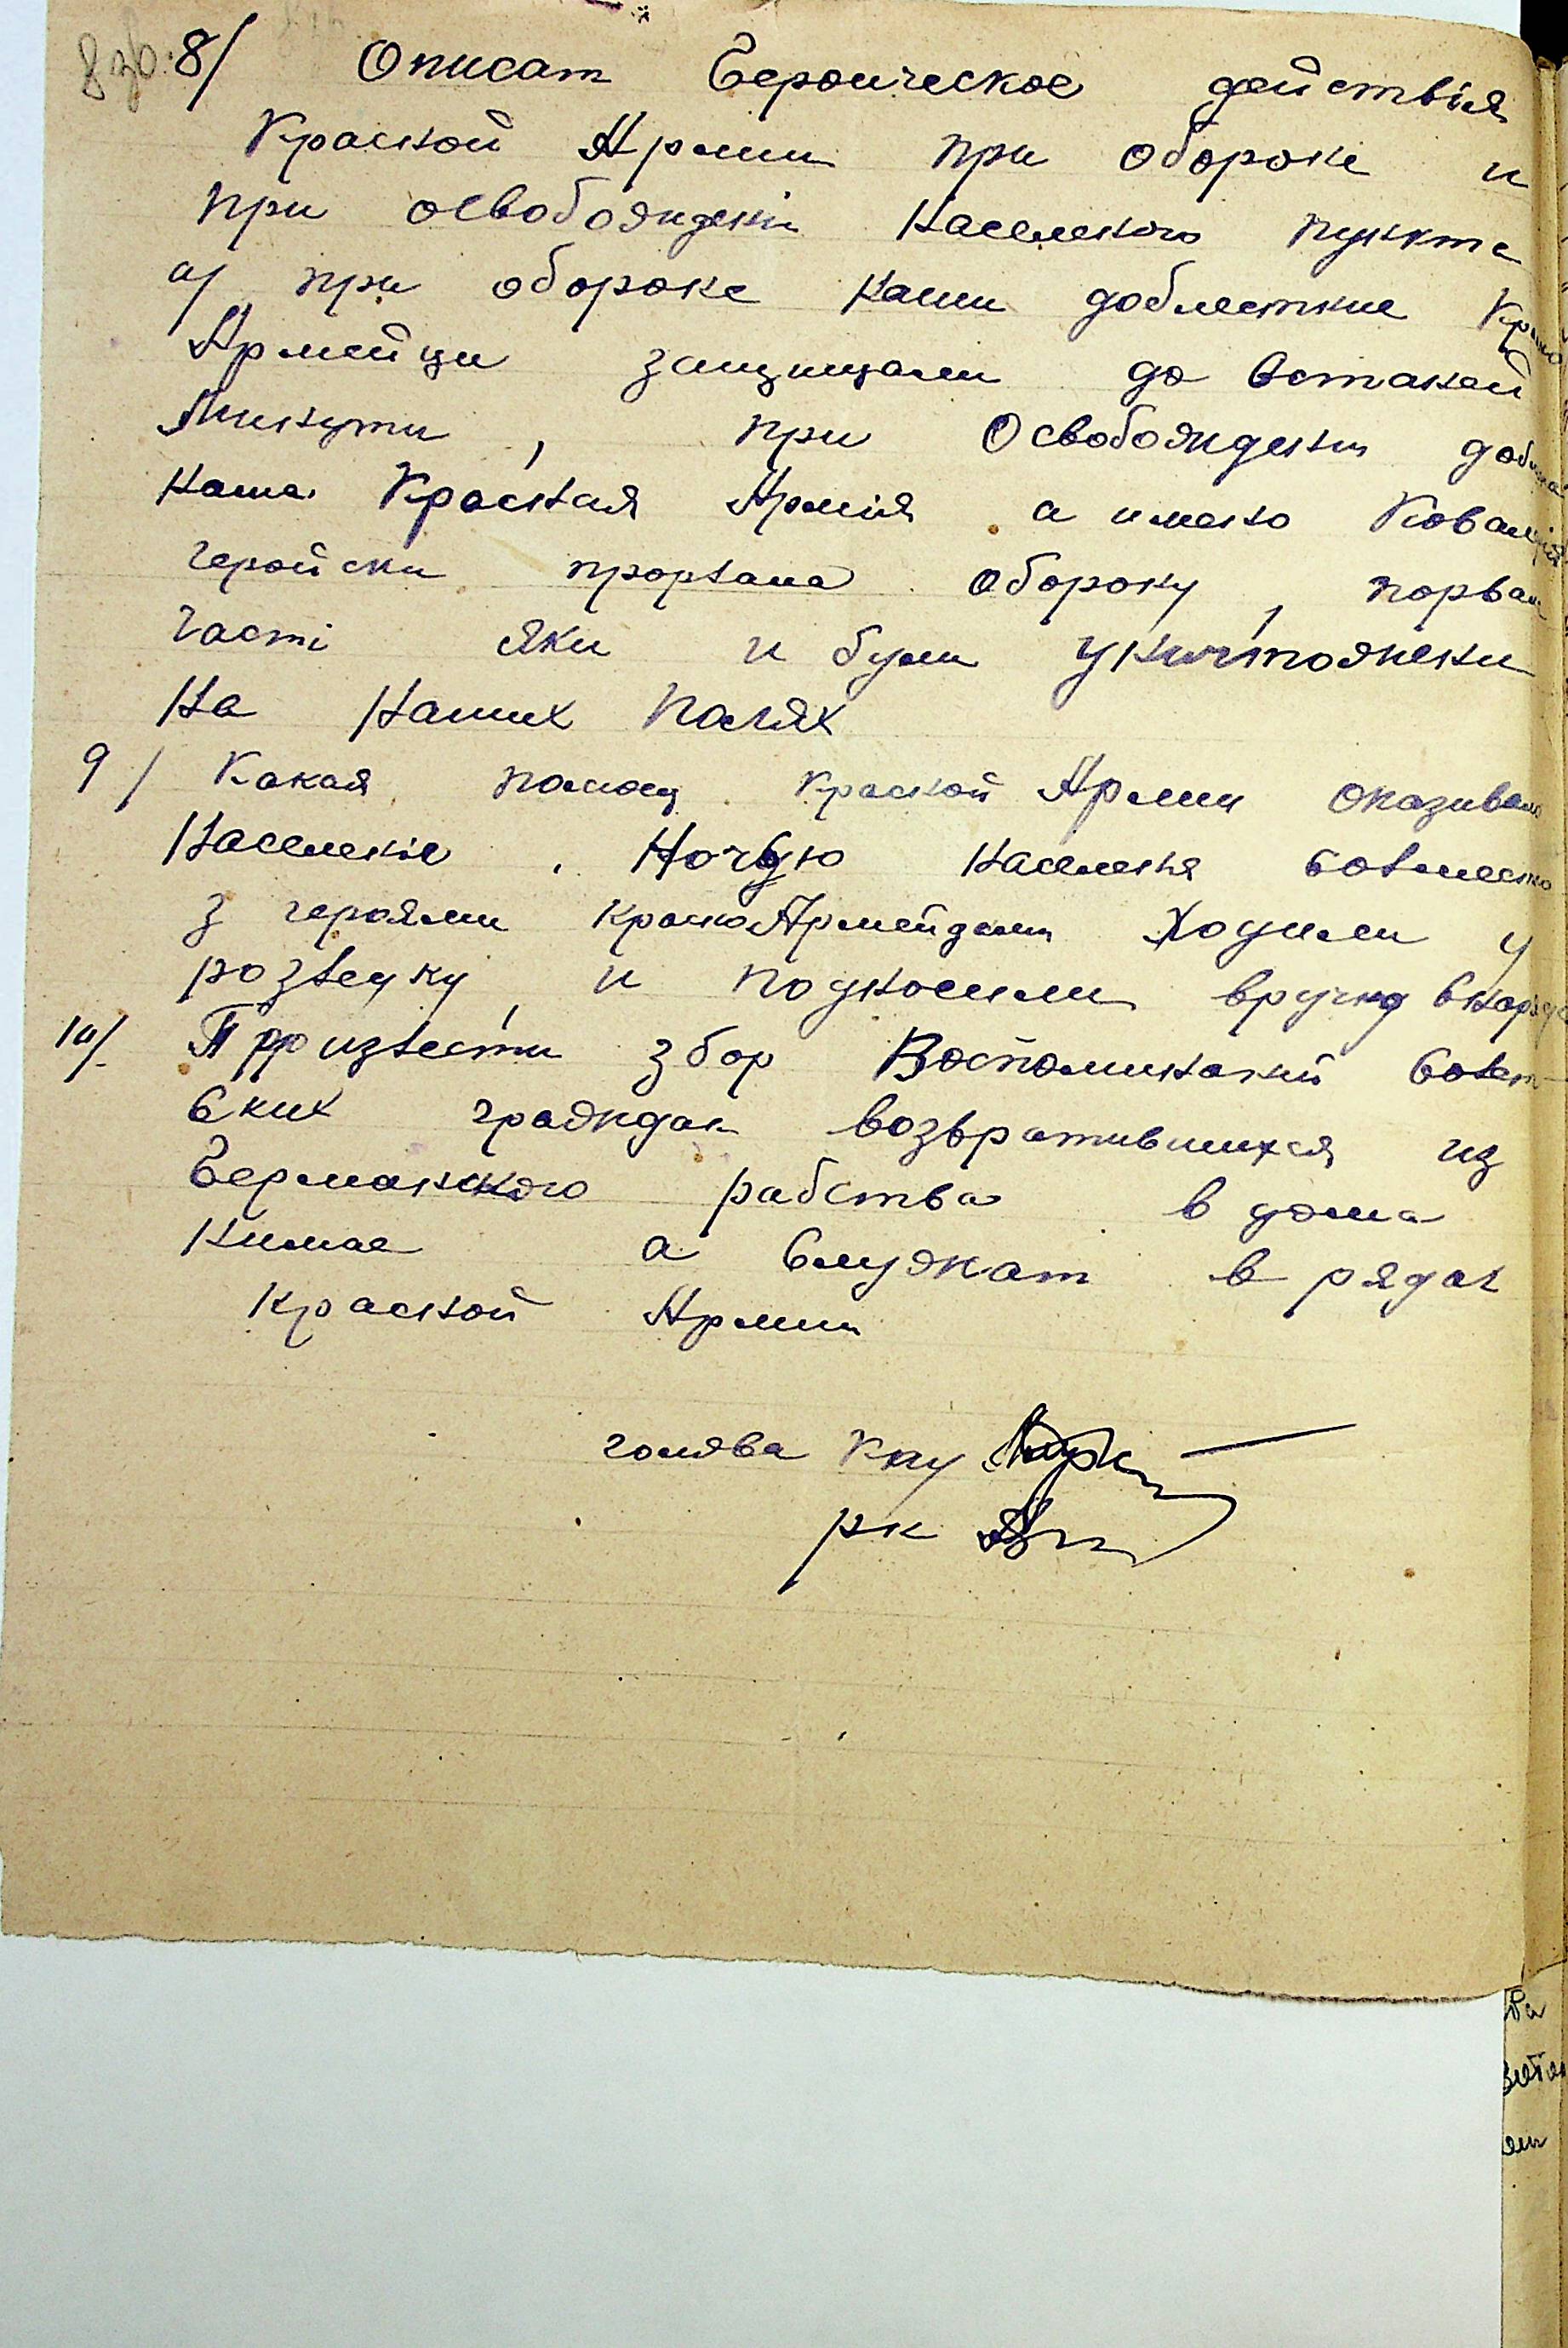 8зв. 8/ Описат Героическое действія
Красной Армии при обороне и
при освобождені населеного пункта
а/ при обороне наши доблестние Красно
Армейци защищали до встаней
Минути, при Освобождени
наша Красная Армія а имено
геройски прорвала оборону,
часті яки и були уничтожени
На наших полях
9/ Какая помощ Красной Армии оказивало
Населеніе. Ночую населеня совмесно
з героями красноАрмейцами Ходили у
розведку и подносили вручно
10/ Произвести збор Воспоминаний Совет-
ских граждан возвратившихся из
Германского рабства в дома
Нимае а Служат в рядах
Красной Армии
голова